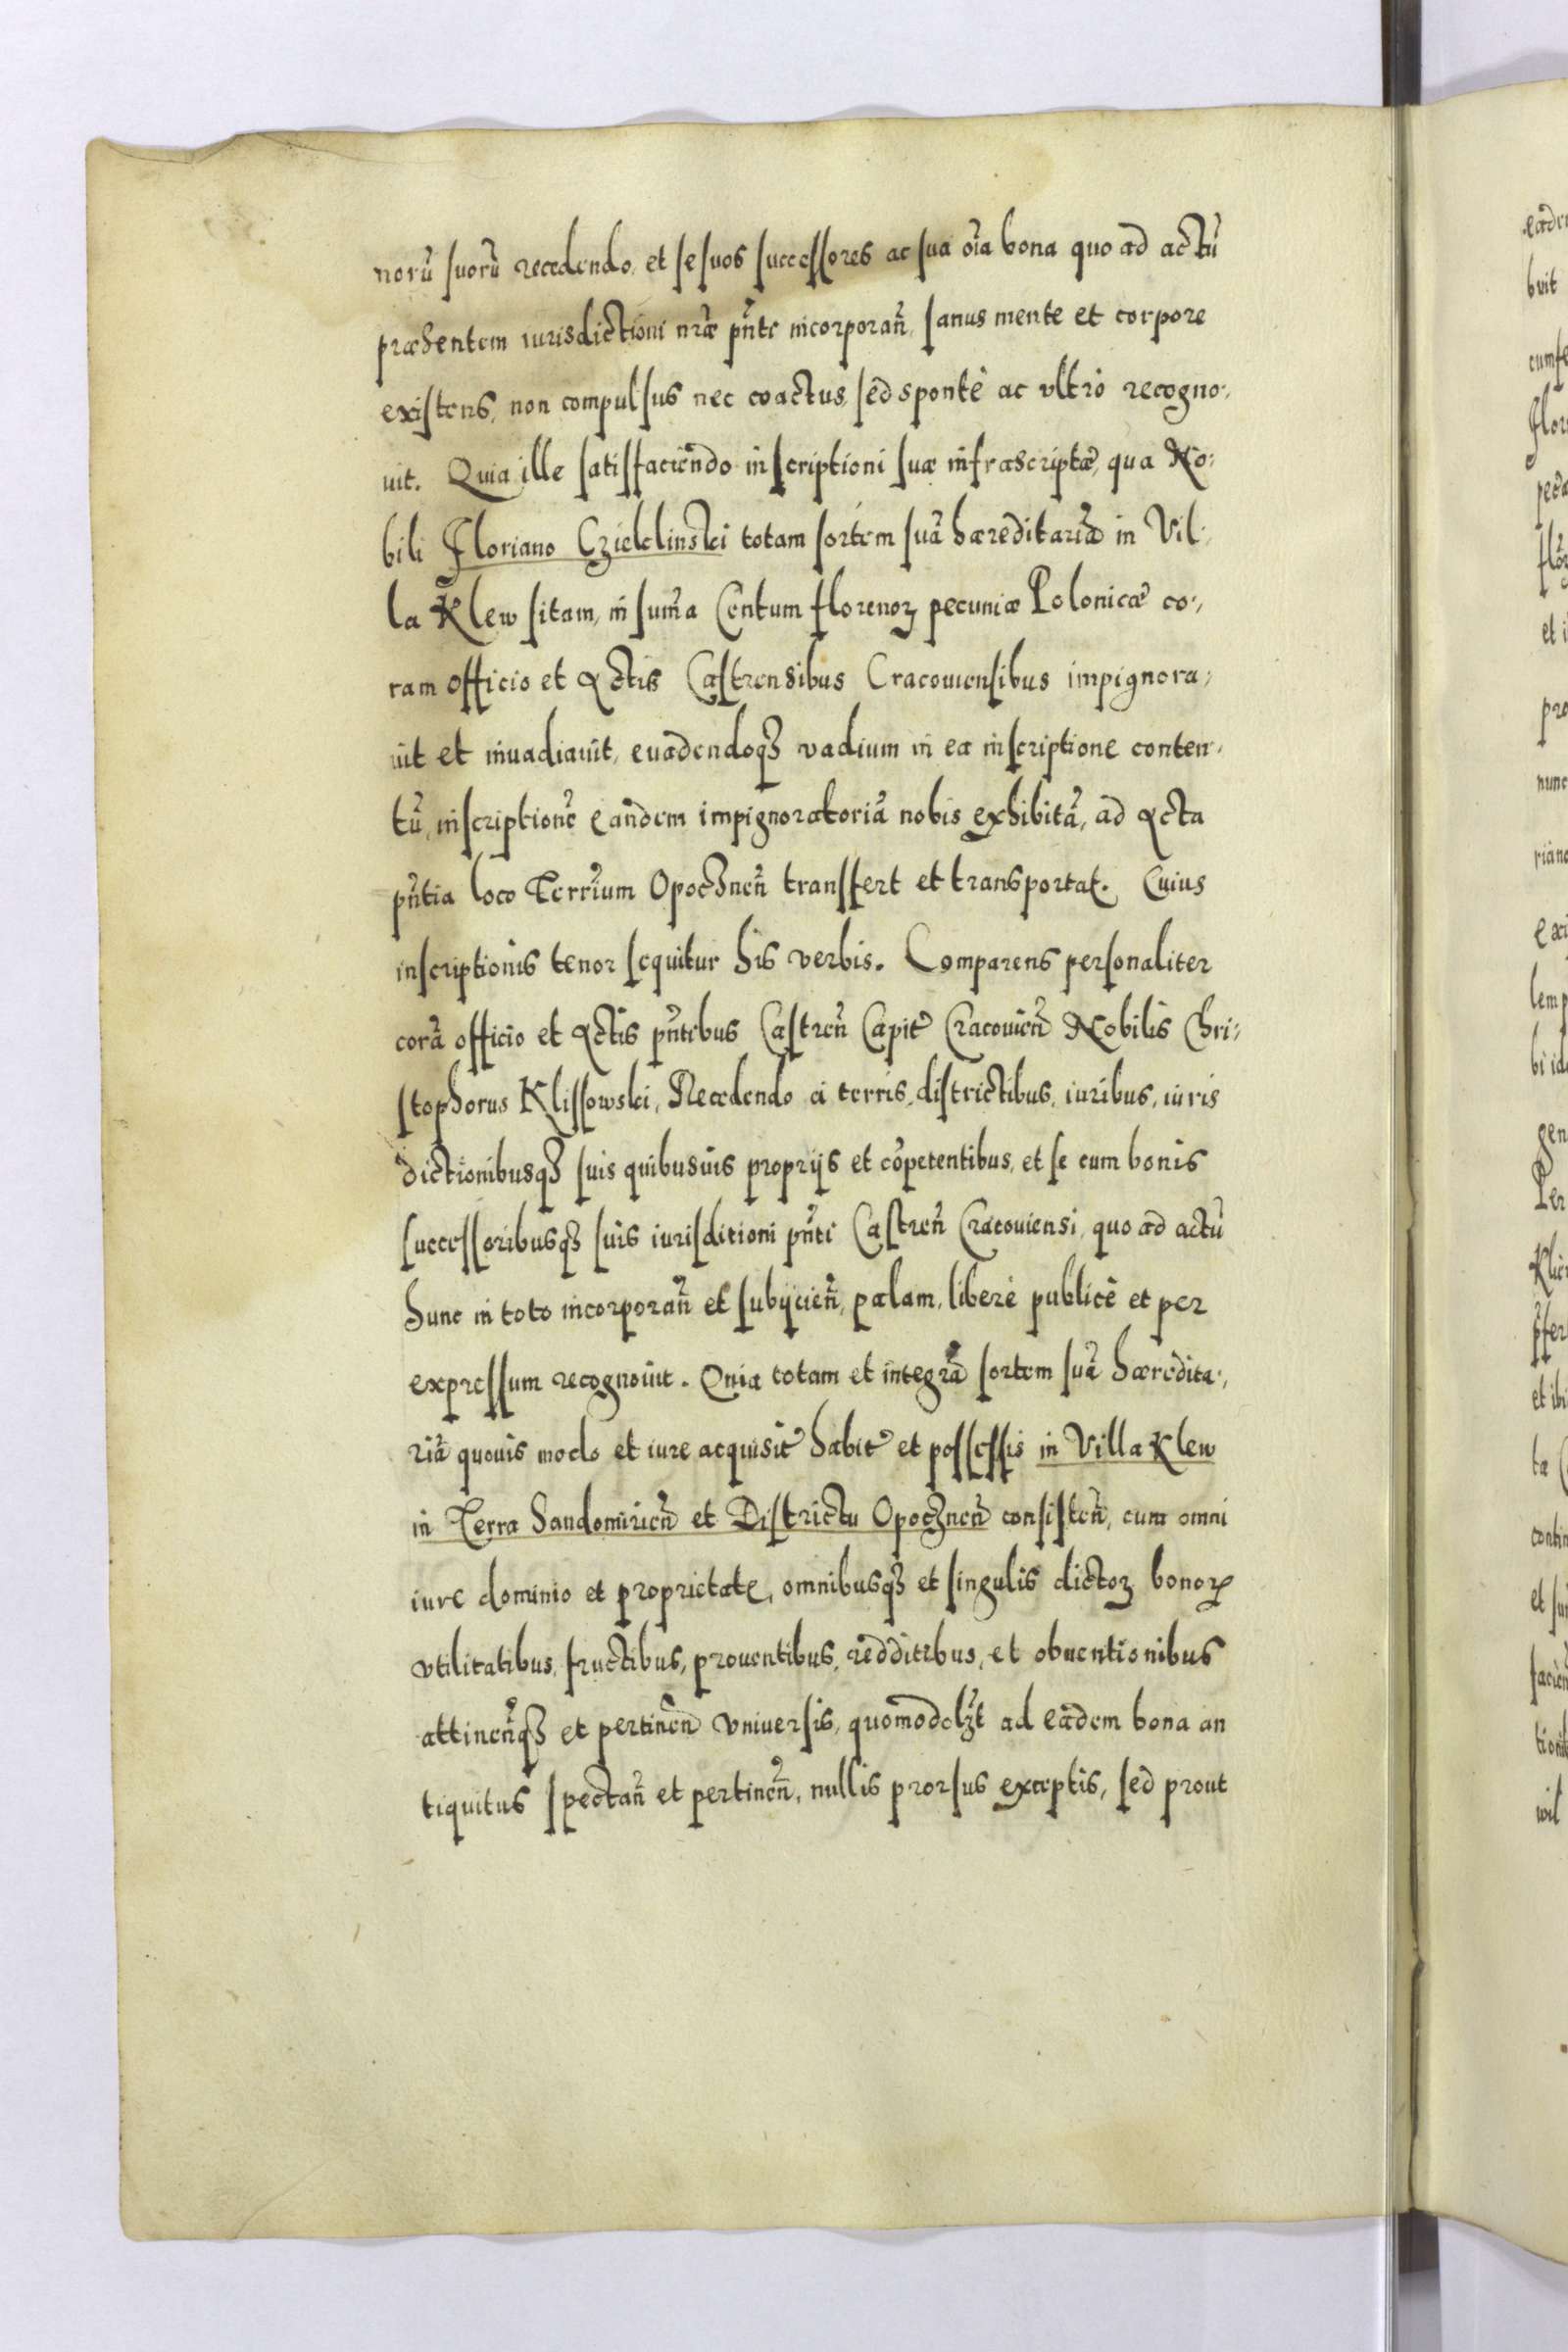 norũ suorũ recedendo, et se suos successores ac sua oĩa bona quo ad actũ
præsentem iurisdictioni nr̃æ pñte incorporañ, sanus mente et corpore
existens, non compulsus nec coactus, sed spontè ac vltrò recogno-
uit. Quia ille satisfaciendo inscriptioni suæ infrascriptæ, qua No-
bili Floriano Czielelinski totam sortem suã hæreditariã in Vil-
la Klew sitam, in sum̃a Centum florenoꝝ pecuniæ Polonicæ co-
ram officio et Actis Castrensibus Cracouiensibus impignora-
uit et inuadiauit, euadendoqꝫ vadium in ea inscriptione conten-
tũ, inscriptionẽ eandem impignoratoriã nobis exhibitã, ad Acta
pñtia loco Terrium Opocznen̄ transfert et transportat. Cuius
inscriptionis tenor sequitur his verbis. Comparens personaliter
corã officio et Actis pñtibus Castren̄ Capit̃ Cracouien̄ Nobilis Chri-
stophorus Klissowski, Recedendo a terris, districtibus, iuribus, iuris
dictionibusqꝫ suis quibusuis proprijs et cõpetentibus, et se cum bonis
successoribusqꝫ suis iurisditioni pñti Castren̄ Cracouiensi, quo ad actũ
hunc in toto incorporan̄ et subijcien̄, palam, liberè publicè et per
expressum recognouit. Quia totam et integrã sortem suã hæredita-
riã quouis modo et iure acquisit̃ habit̃ et possessis in Villa Klew
in Terra Sandomirien̄ et Districtu Opocznen̄ consisten̄, cum omni
iure dominio et proprietate, omnibusqꝫ et singulis dictoꝝ bonoꝝ
vtilitatibus, fructibus, prouentibus, redditibus, et obuentionibus
attinen̄qꝫ et pertinen̄ vniuersis, quomodolꝫt ad eadem bona an
tiquitus spectan̄ et pertinen̄, nullis prorsus exceptis, sed prout